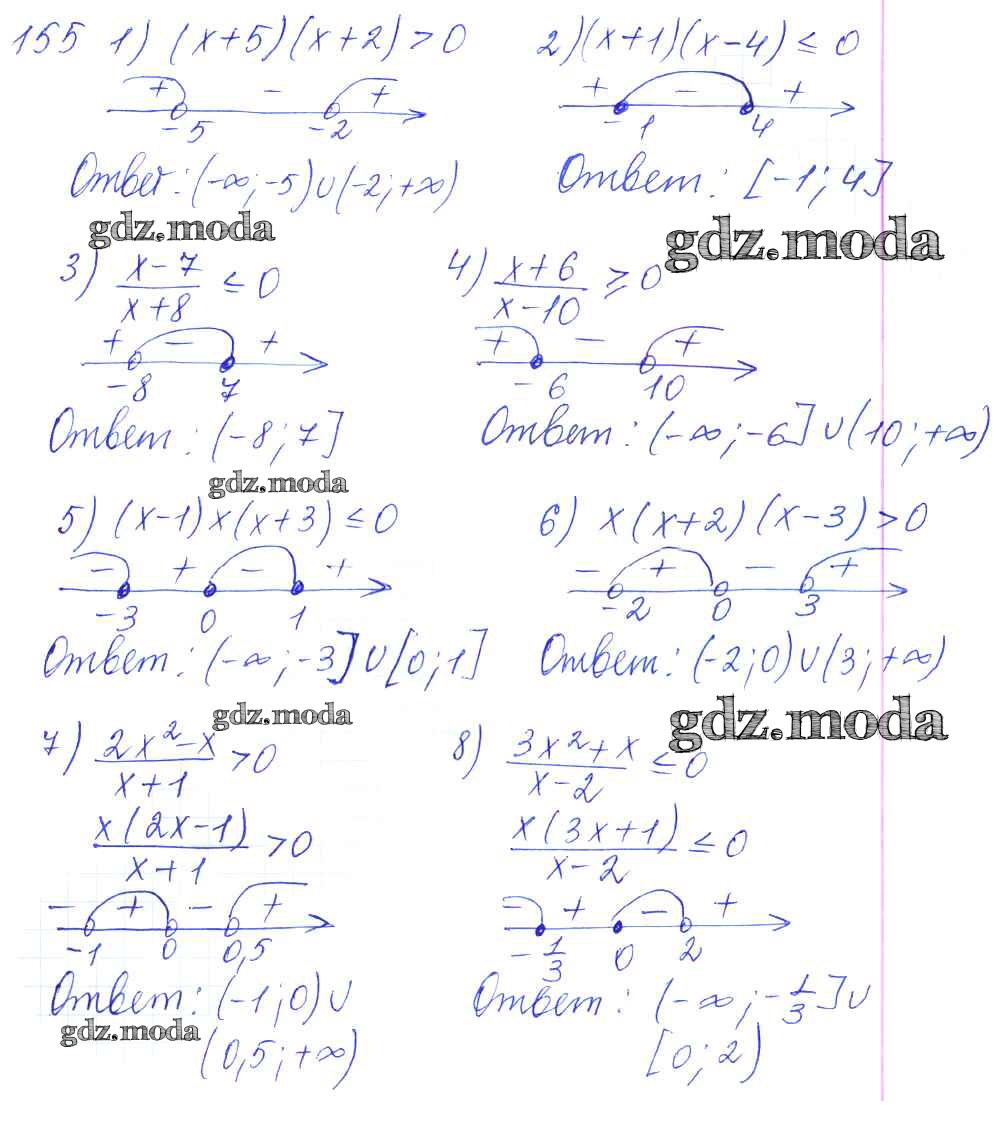 155 1) (x+5)(x+2)>0
+ - +
-5 -2
Ответ: (-∞;-5)∪(-2;+∞)
2)(x+1)(x-4)≤0
+ - +
-1 4
Ответ: [-1;4]
gdz.moda
gdz.moda
3) x-7/x+8 ≤0
+ - +
-8 7
Ответ: (-8;7]
4) x+6/x-10 ≥0
+ - +
-6 10
Ответ: (-∞;-6]∪(10;+∞)
gdz.moda
5) (x-1)x(x+3)≤0
- + - +
-3 0 1
Ответ: (-∞;-3]∪[0;1]
6) x(x+2)(x-3)>0
- + - +
-2 0 3
Ответ: (-2;0)∪(3;+∞)
gdz.moda
gdz.moda
7) 2x²-x/x+1 >0
x(2x-1)/x+1 >0
- + - +
-1 0 0,5
Ответ: (-1;0)∪
(0,5;+∞)
8) 3x²+x/x-2 ≤0
x(3x+1)/x-2 ≤0
- + - +
-1/3 0 2
Ответ: (-∞;-1/3]∪
[0;2)
gdz.moda